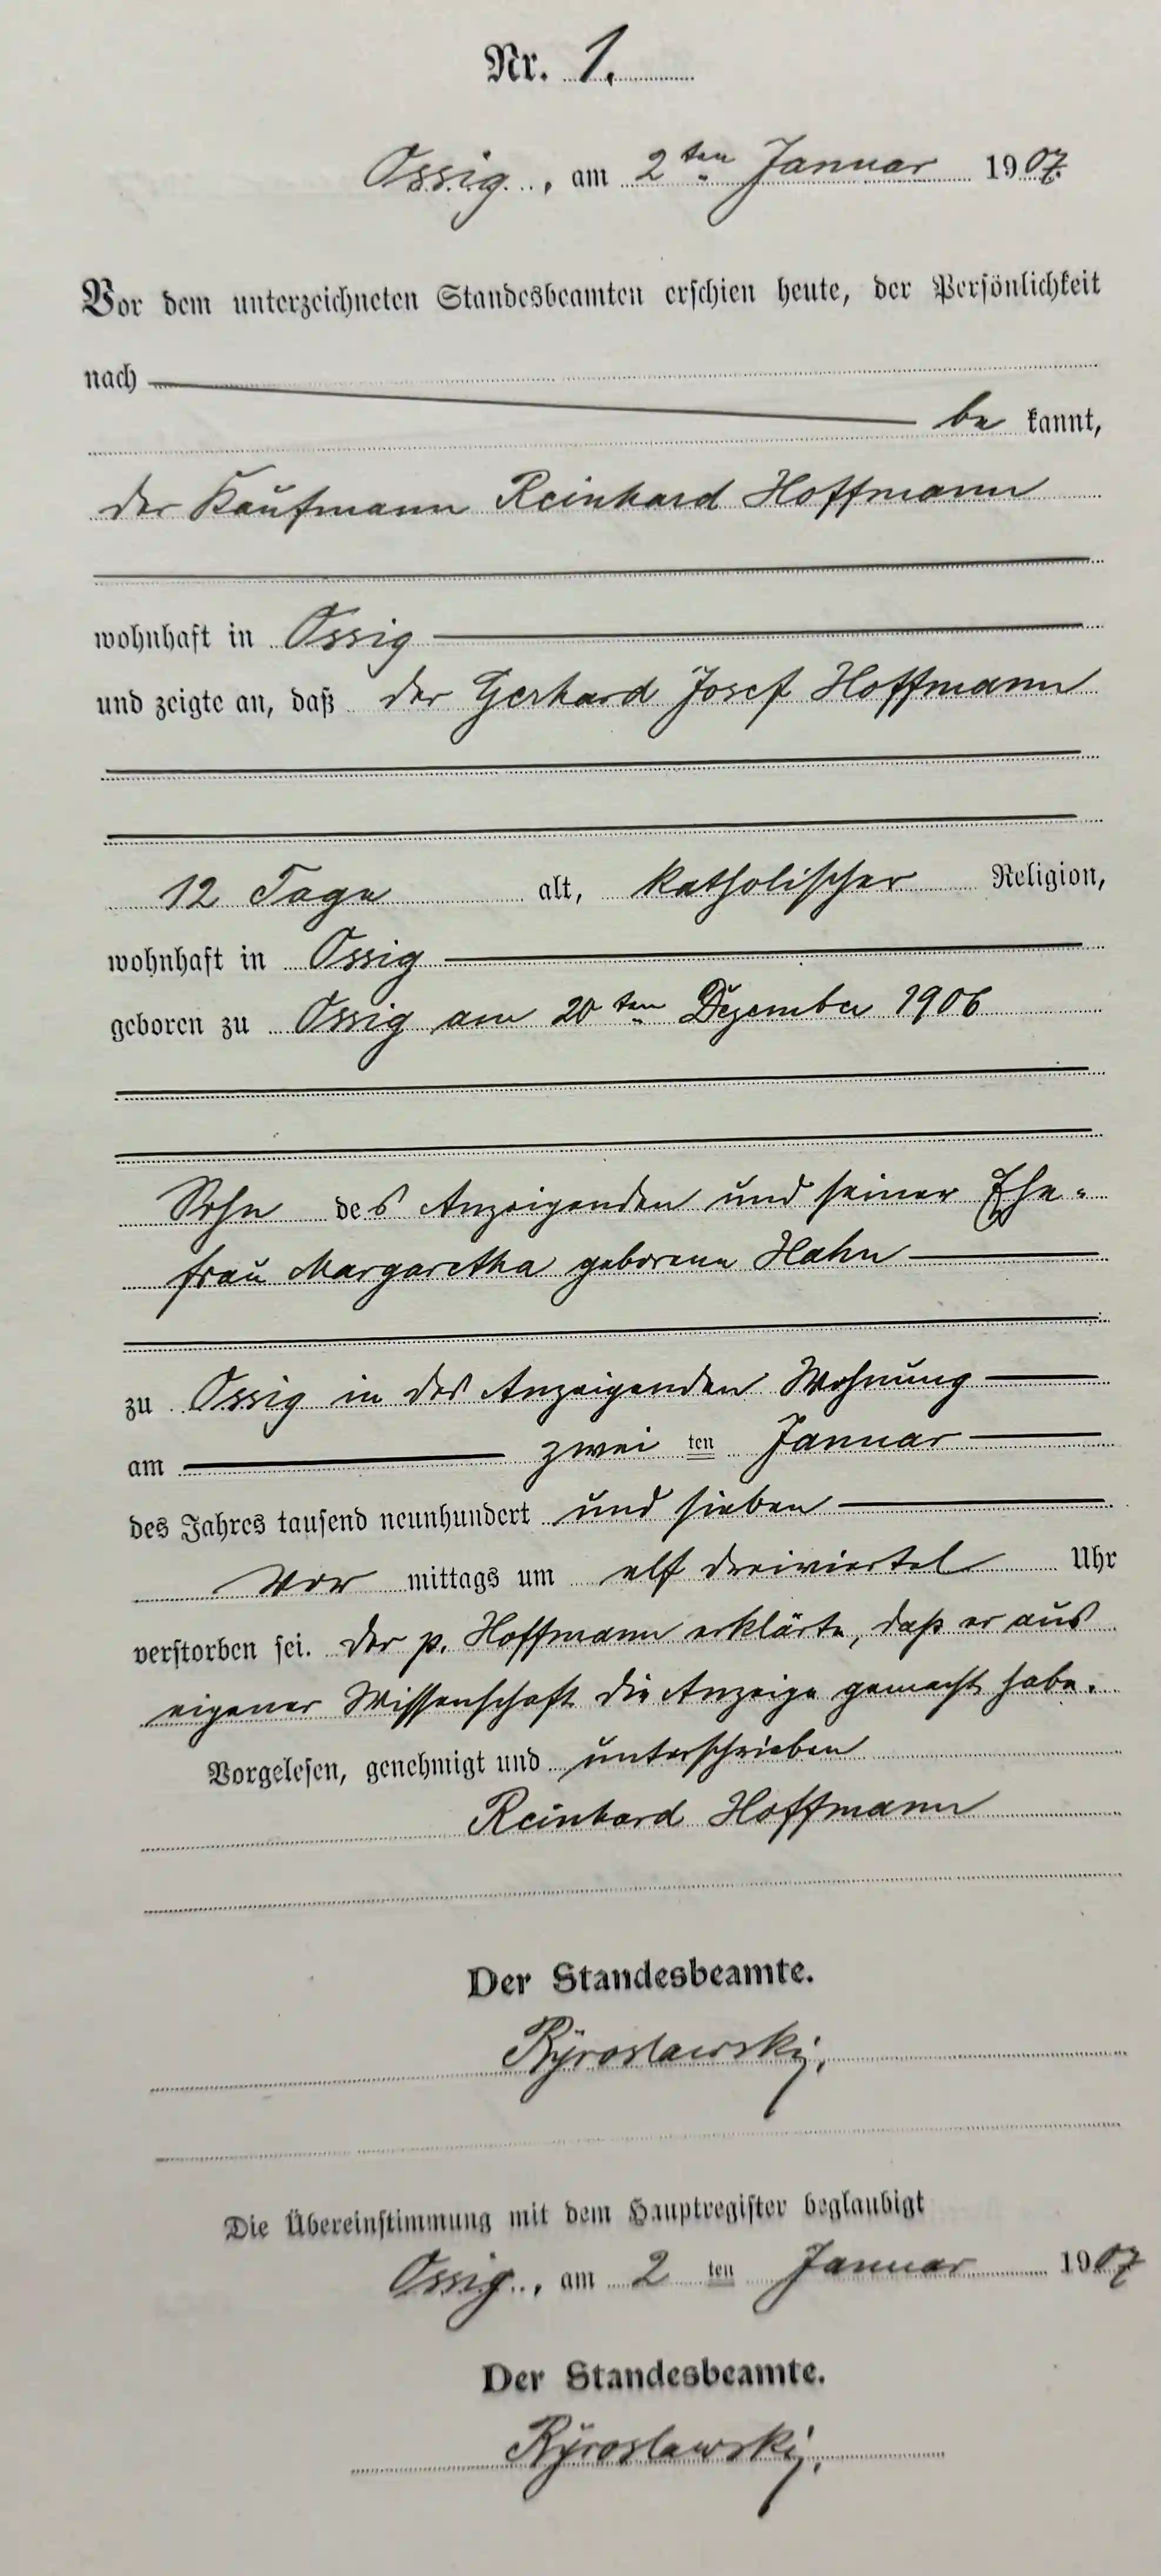 Nr. 1.
Ossig, am 2ten Januar 1907.
Vor dem unterzeichneten Standesbeamten erschien heute, der Persönlichkeit
nach
be kannt,
der Kaufmann Reinhard Hoffmann
wohnhaft in Ossig
und zeigte an, daß der Gerhard Josef Hoffmann
12 Tage alt, katholischer Religion,
wohnhaft in Ossig
geboren zu Ossig am 20ten Dezember 1906
Sohn des Anzeigenden und seiner Ehe-
frau Margaretha geborene Hahn
zu Ossig in des Anzeigenden Wohnung
am zwei ten Januar
des Jahres tausend neunhundert und sieben
Vor mittags um elf dreiviertel Uhr
verstorben sei. Der p. Hoffmann erklärte, daß er aus
eigener Wissenschaft die Anzeige gemacht habe.
Vorgelesen, genehmigt und unterschrieben
Reinhard Hoffmann
Der Standesbeamte.
Die Übereinstimmung mit dem Hauptregister beglaubigt
Ossig, am 2 ten Januar 1907
Der Standesbeamte.